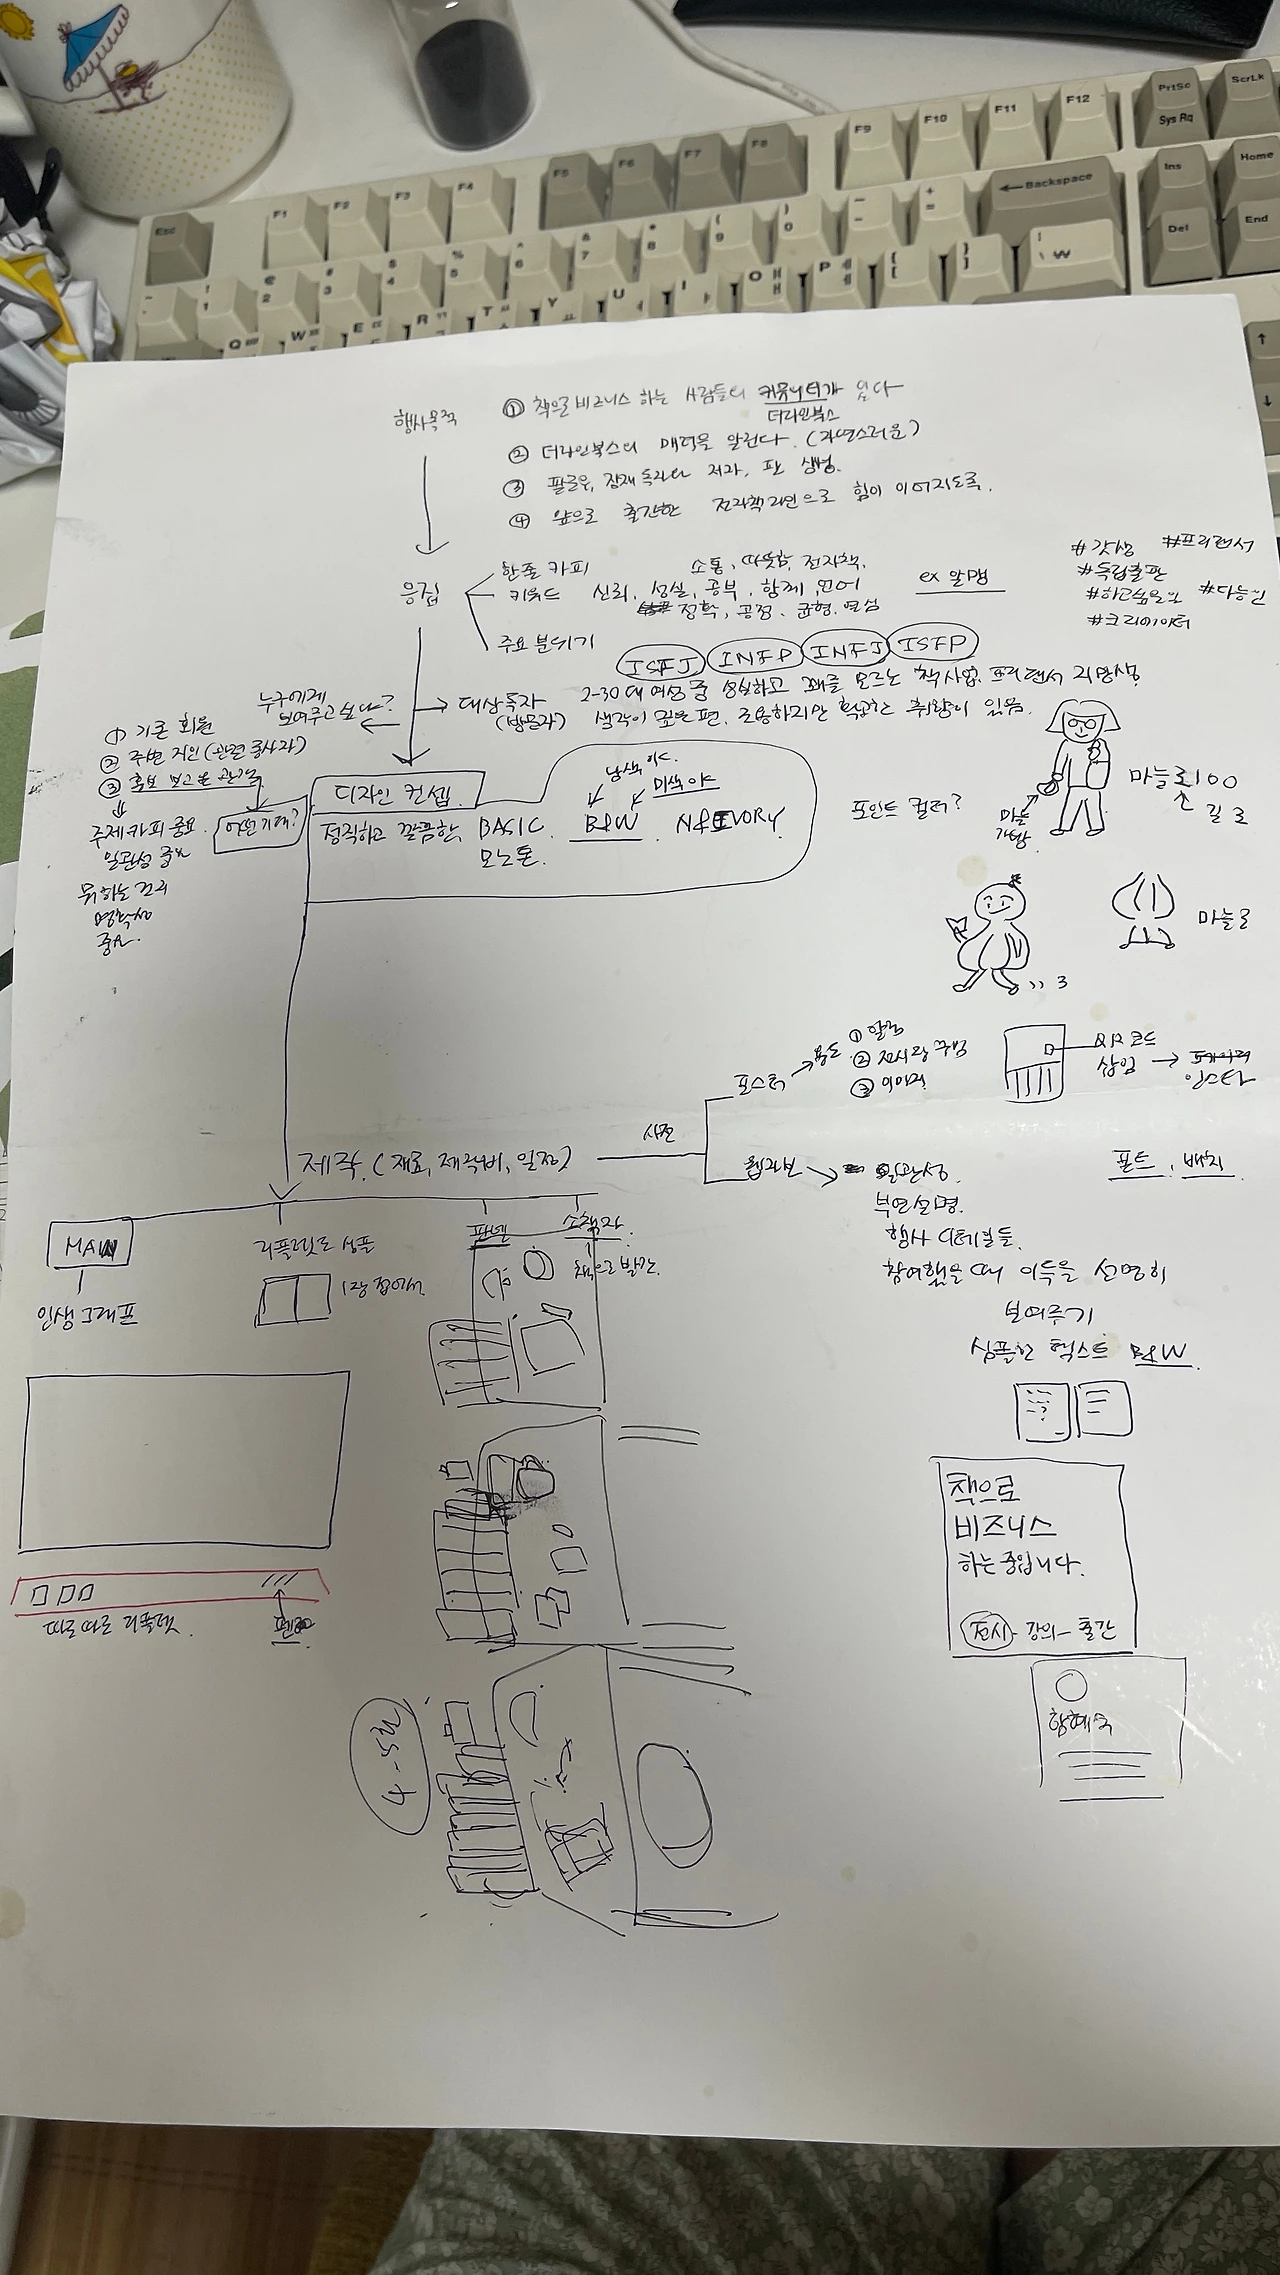 행사목적
① 책으로 비즈니스 하는 사람들의 커뮤니티가 있다
더라인북스
② 더라인북스의 매력을 알린다. (자연스러운)
③ 팔로우, 잠재독자와 저자, 팬 생성.
④ 앞으로 출간한 전자책 라인으로 힘이 이어지도록.
응집
한줄 카피
키워드
소통, 따뜻함, 전자책,
신뢰, 성실, 공부, 함께, 언어
정확, 공정, 균형, 열심
ex 알맹
주요 분위기
#갓생 #프리랜서
#독립출판
#하고싶은일 #다능인
#크리에이터
ISFJ INFP INFJ ISFP
누구에게
보여주고 싶나?
대상독자
(방문자)
2-30대 여성 중 성실하고 꾀를 모르는 책사업, 프리랜서 지망생
생각이 깊은 편, 조용하지만 확고한 취향이 있음.
① 기존 회원
② 주변 지인 (관련 종사자)
③ 홍보 보고 온 관객
주제 카피 중요
일관성 중요
뭐 하는 건지
명확성
중요.
어떤 기대?
디자인 컨셉.
정직하고 깔끔한, BASIC.
모노톤.
남색 or
미색 or
B&W
N&IVORY
포인트 컬러?
마늘로100
길로
마늘
가방
마늘로
제작. (재료, 제작비, 일정)
사전
포스터
용도
① 알림
② 전시장 꾸밈
③ 이미지
QR코드
삽입
웹자보
일관성.
부연설명.
행사 디테일들.
참여했을 때 이득을 선명히
보여주기
심플한 텍스트 B&W
폰트, 배치
MAIN
인생그래프
리플렛도 심플
1장 접어서
판넬
소책자
책으로 발간.
따로따로 리플렛.
펜
책으로
비즈니스
하는 중입니다.
전시 - 강의 - 출간